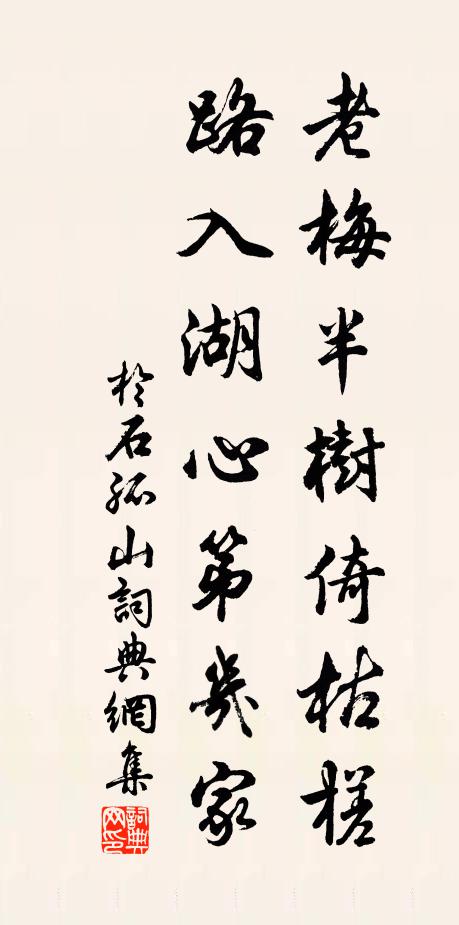 老梅半樹倚枯槎
路入湖心第幾家
於石孤山詞典網集
詞典网印